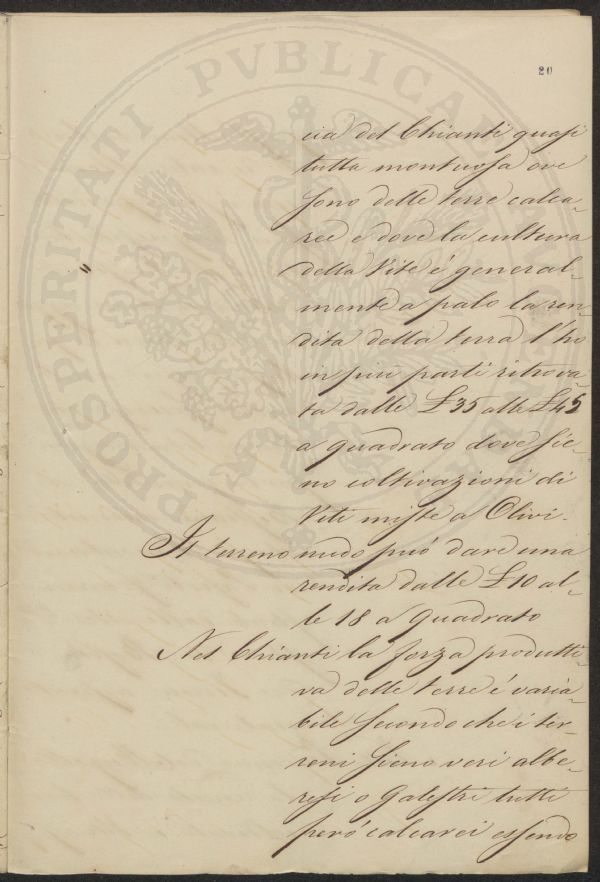 20
PROSPERITATI PVBLICAE
cia del Chianti quasi
tutta montuosa ove
sono delle terre calca-
ree e dove la cultura
della Vite é general-
mente a palo la ren-
dita della terra l'ho
in piú parti ritrova-
ta dalle £35 alle £45
a quadrato dove sie-
no coltivazioni di
Viti miste a Olivi.
Il terreno nudo può dare una
rendita dalle £10 al-
le 18 a quadrato
Nel Chianti la forza produtti-
va delle terre é varia-
bile secondo che i ter-
reni sieno veri albe-
resi o Galestri tutti
peró calcarei essendo